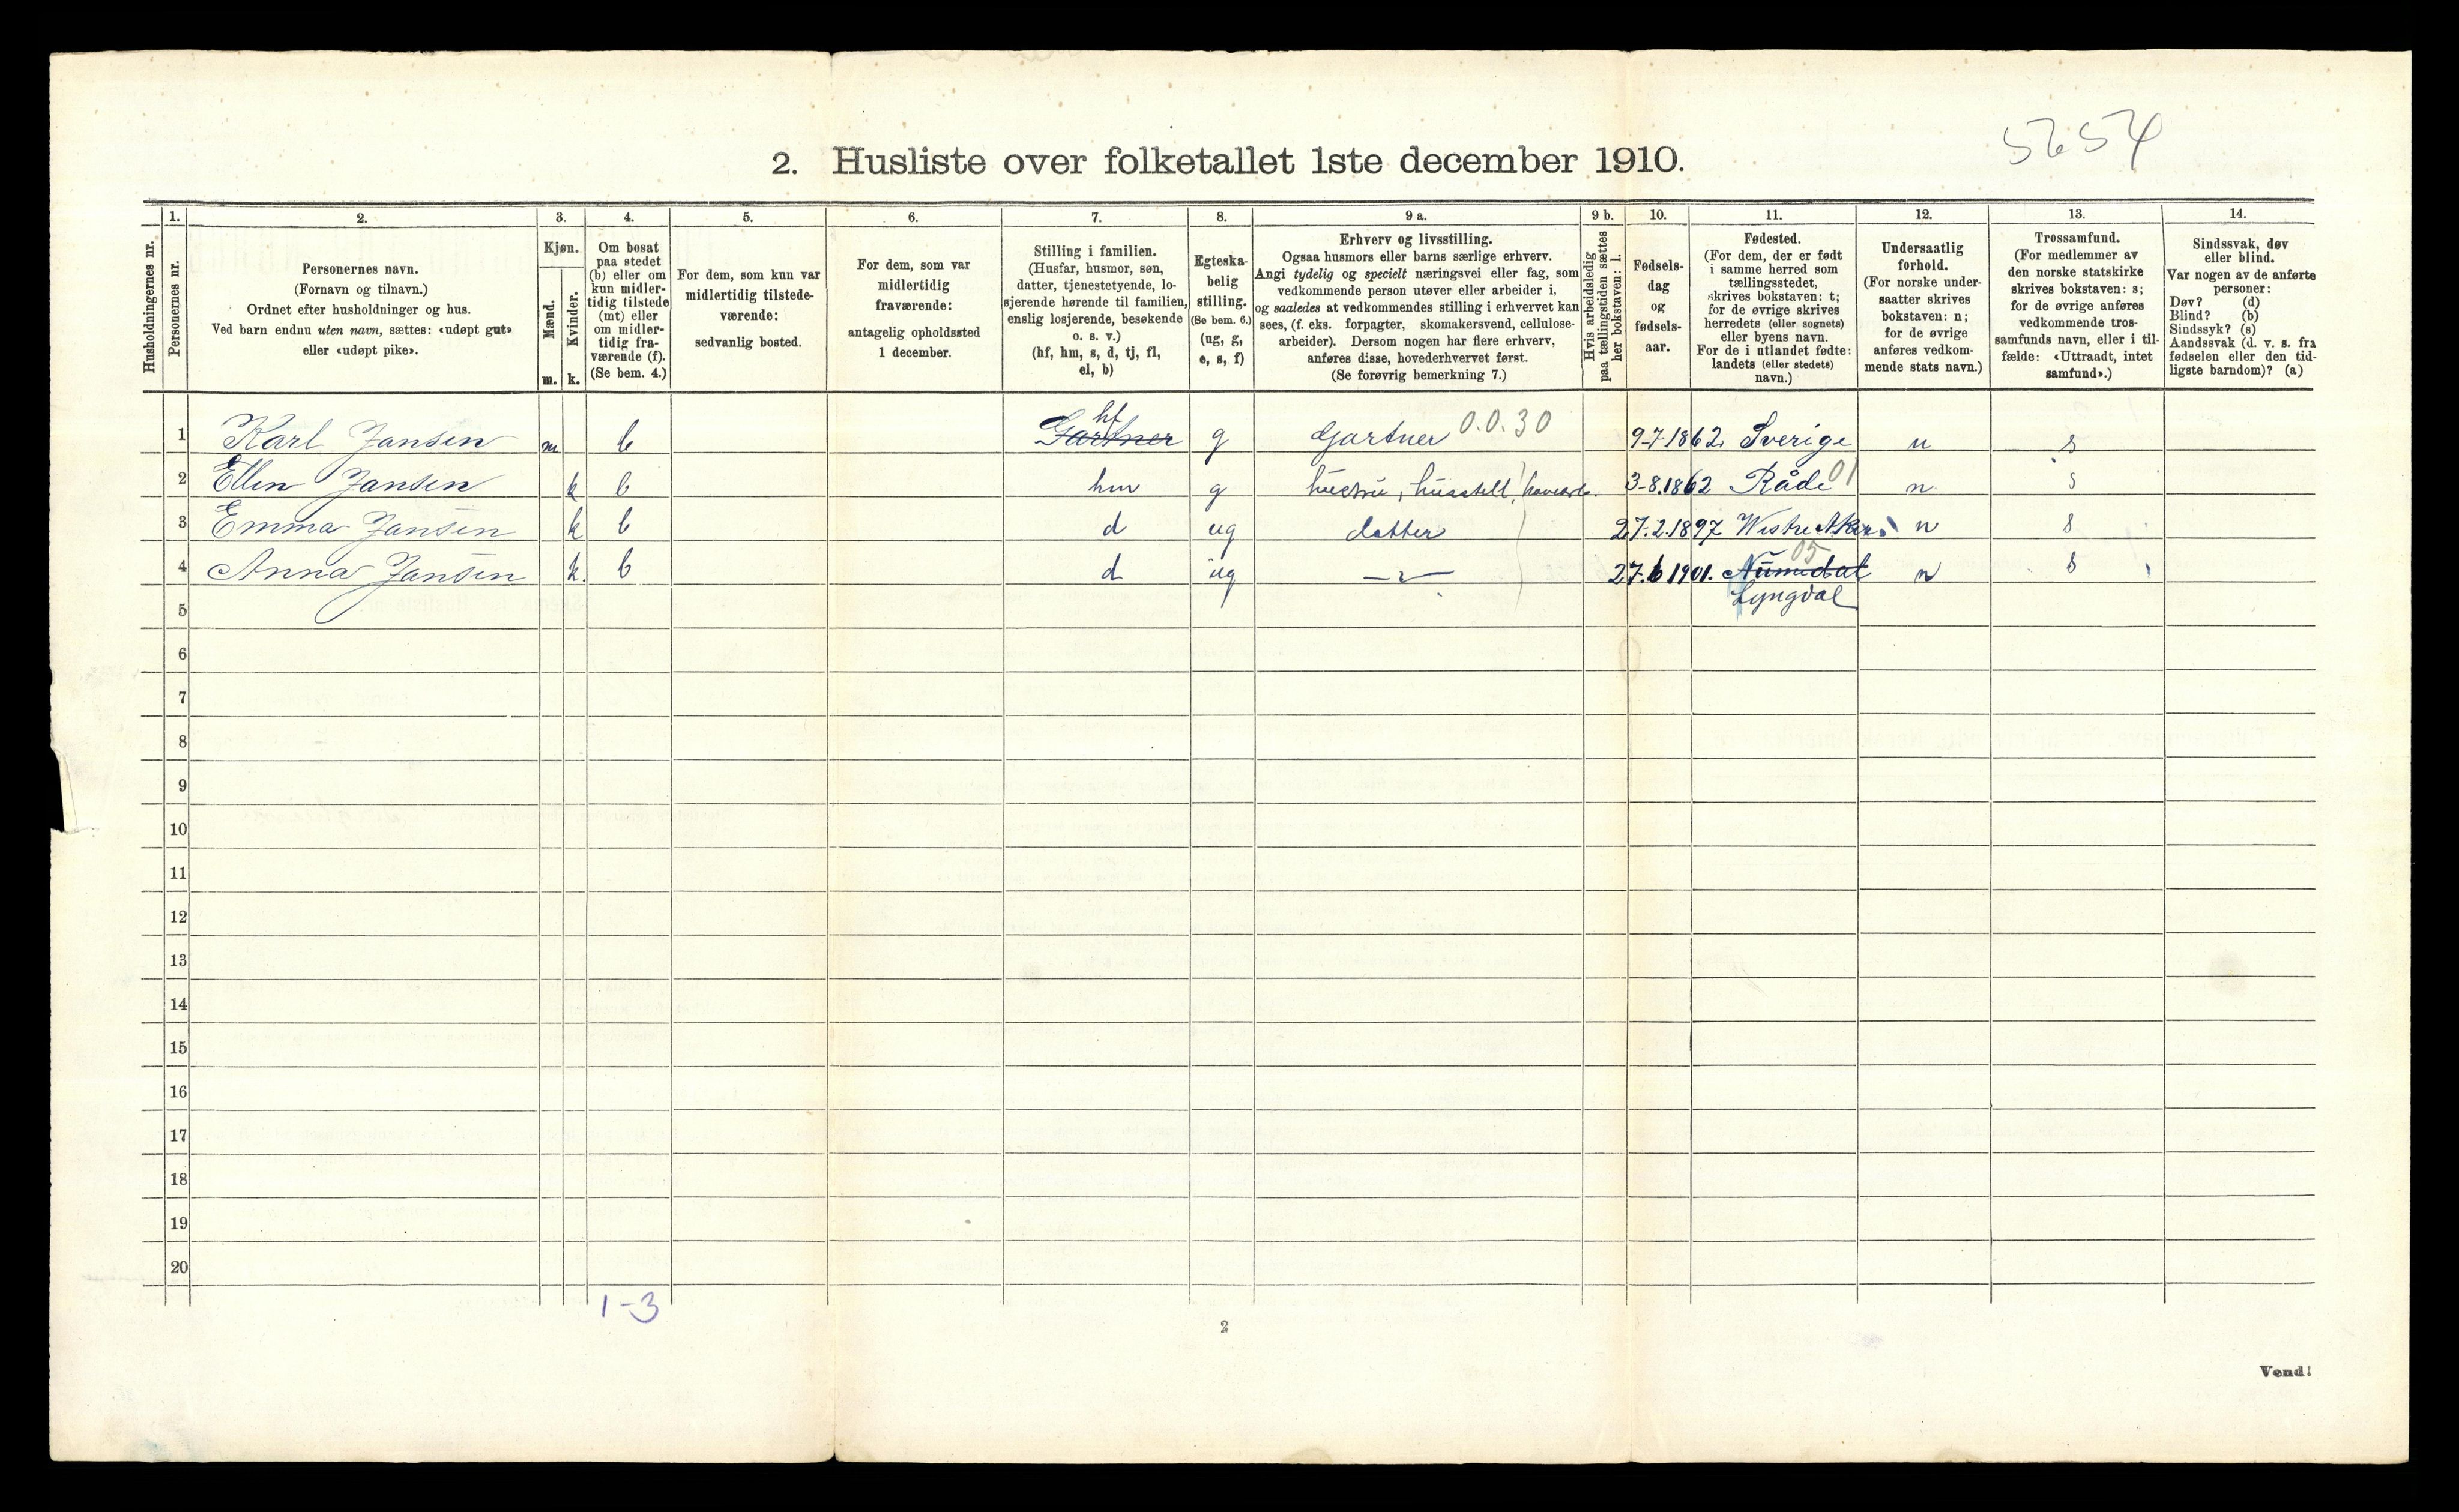 5654
2. Husliste over folketallet 1ste december 1910.
Husholdningernes nr.
1.
Personernes nr.
2.
Personernes navn.
(Fornavn og tilnavn.)
Ordnet efter husholdninger og hus.
Ved barn endnu uten navn, sættes: «udøpt gut»
eller «udøpt pike».
3.
Kjøn.
Mænd.
Kvinder.
m. k.
4.
Om bosat
paa stedet
(b) eller om
kun midler-
tidig tilstede
(mt) eller
om midler-
tidig fra-
værende (f).
(Se bem. 4.)
5.
For dem, som kun var
midlertidig tilstede-
værende:
sedvanlig bosted.
6.
For dem, som var
midlertidig
fraværende:
antagelig opholdssted
1 december.
7.
Stilling i familien.
(Husfar, husmor, søn,
datter, tjenestetyende, lo-
sjerende hørende til familien,
enslig losjerende, besøkende
o. s. v.)
(hf, hm, s, d, tj, fl,
el, b)
8.
Egteska-
belig
stilling.
(Se bem. 6.)
(ug, g,
e, s, f)
9 a.
Erhverv og livsstilling.
Ogsaa husmors eller barns særlige erhverv.
Angi tydelig og specielt næringsvei eller fag, som
vedkommende person utøver eller arbeider i,
og saaledes at vedkommendes stilling i erhvervet kan
sees, (f. eks. forpagter, skomakersvend, cellulose-
arbeider). Dersom nogen har flere erhverv,
anføres disse, hovederhvervet først.
(Se forøvrig bemerkning 7.)
9 b.
Hvis arbeidsledig
paa tællingstiden sættes
her bokstaven: l.
10.
Fødsels-
dag
og
fødsels-
aar.
11.
Fødested.
(For dem, der er født
i samme herred som
tællingsstedet,
skrives bokstaven: t;
for de øvrige skrives
herredets (eller sognets)
eller byens navn.
For de i utlandet fødte:
landets (eller stedets)
navn.)
12.
Undersaatlig
forhold.
(For norske under-
saatter skrives
bokstaven: n;
for de øvrige
anføres vedkom-
mende stats navn.)
13.
Trossamfund.
(For medlemmer av
den norske statskirke
skrives bokstaven: s;
for de øvrige anføres
vedkommende tros-
samfunds navn, eller i til-
fælde: «Uttraadt, intet
samfund».)
14.
Sindssvak, døv
eller blind.
Var nogen av de anførte
personer:
Døv? (d)
Blind? (b)
Sindssyk? (s)
Aandssvak (d. v. s. fra
fødselen eller den tid-
ligste barndom)? (a)
1 Karl Jansen m b Gartner hf g Gartner 0.0.30 9-7-1862 Sverige n s
2 Ellen Jansen k b hm g hustru, husstell, 3-8.1862 Råde 01 n s
3 Emma Jansen k b d ug datter 27.2.1897 Westre Aker n s
4 Anna Jansen k. b d ug 27.6 1901. Numedal 05 n s
5 Lyngdal
6
7
8
9
10
11
12
13
14
15
16
17
18
19
20
1-3
2
Vend!